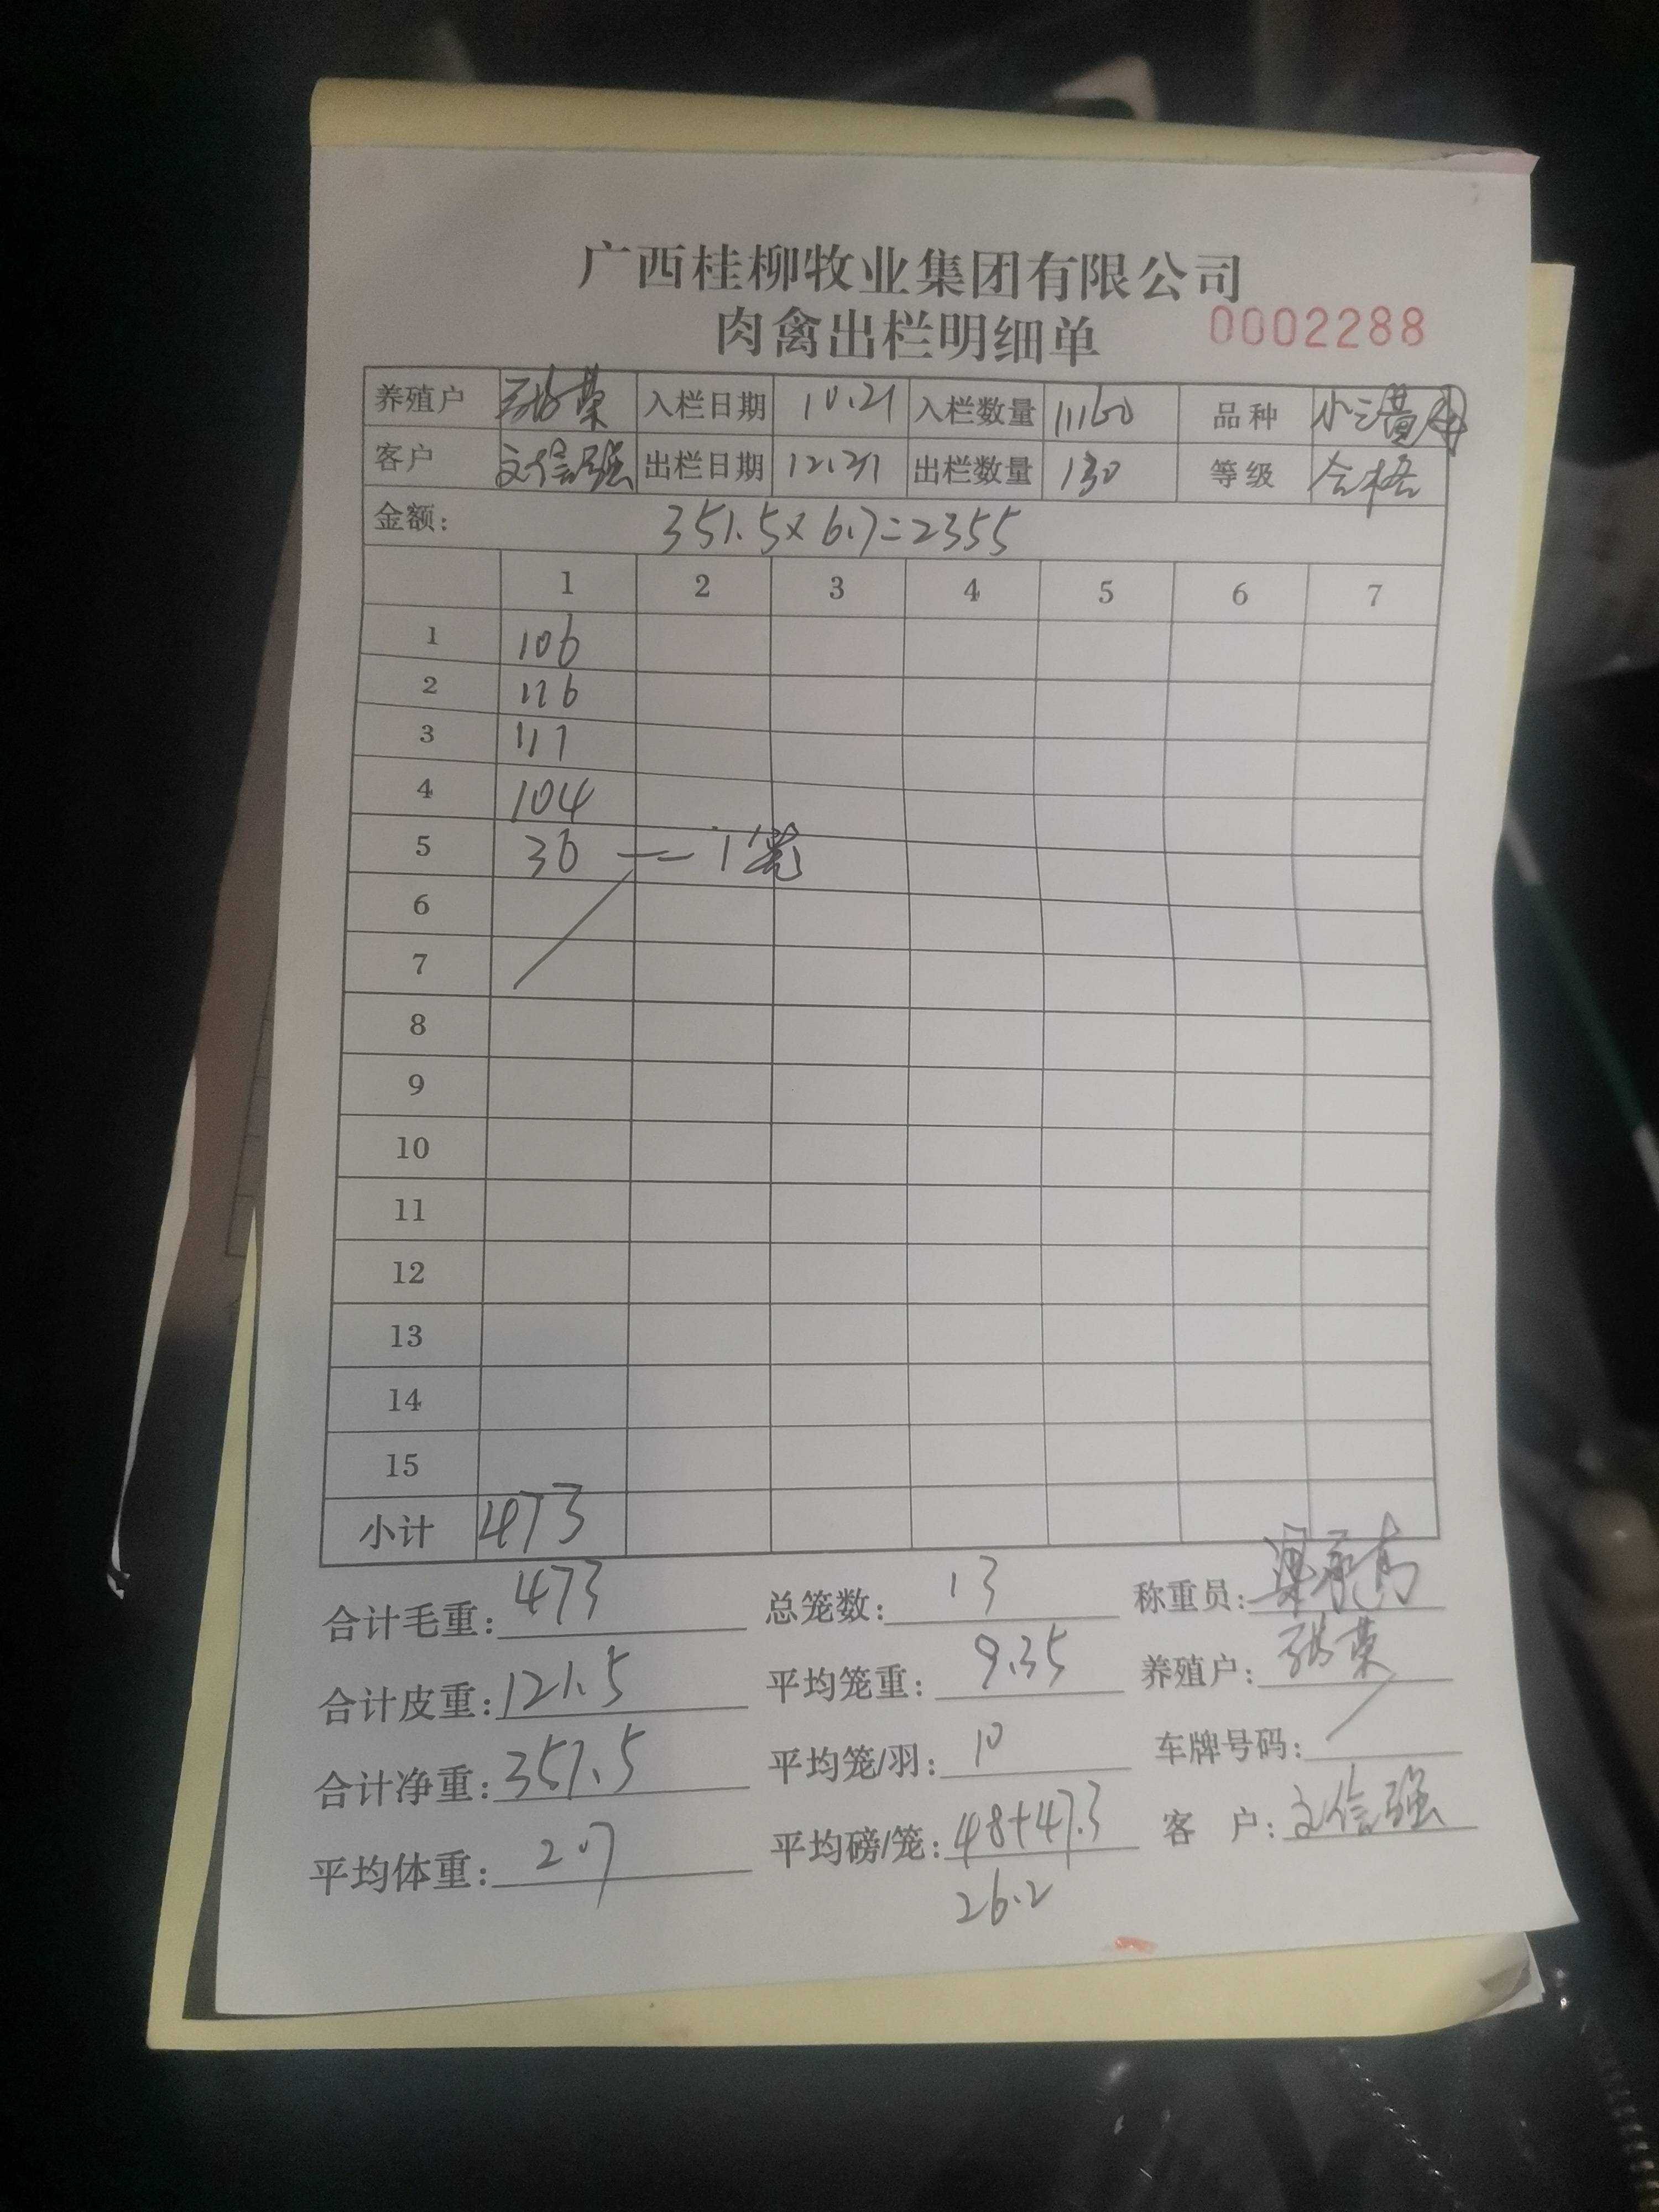 广西桂柳牧业集团有限公司
肉禽出栏明细单 0002288
养殖户 荣 入栏日期 10.21 入栏数量 11160 品种 小三黄
客户 文信强 出栏日期 12.21 出栏数量 130 等级 合格
金额: 351.5×6.7=2355
1 2 3 4 5 6 7
1 106
2 116
3 111
4 104
5 36 — 1笼
6
7
8
9
10
11
12
13
14
15
小计 473
合计毛重: 473 总笼数: 13 称重员:
合计皮重: 121.5 平均笼重: 9.35 养殖户: 荣
合计净重: 351.5 平均笼/羽: 10 车牌号码:
平均体重: 2.7 平均磅/笼: 48+47.3 客 户: 文信强
26.2